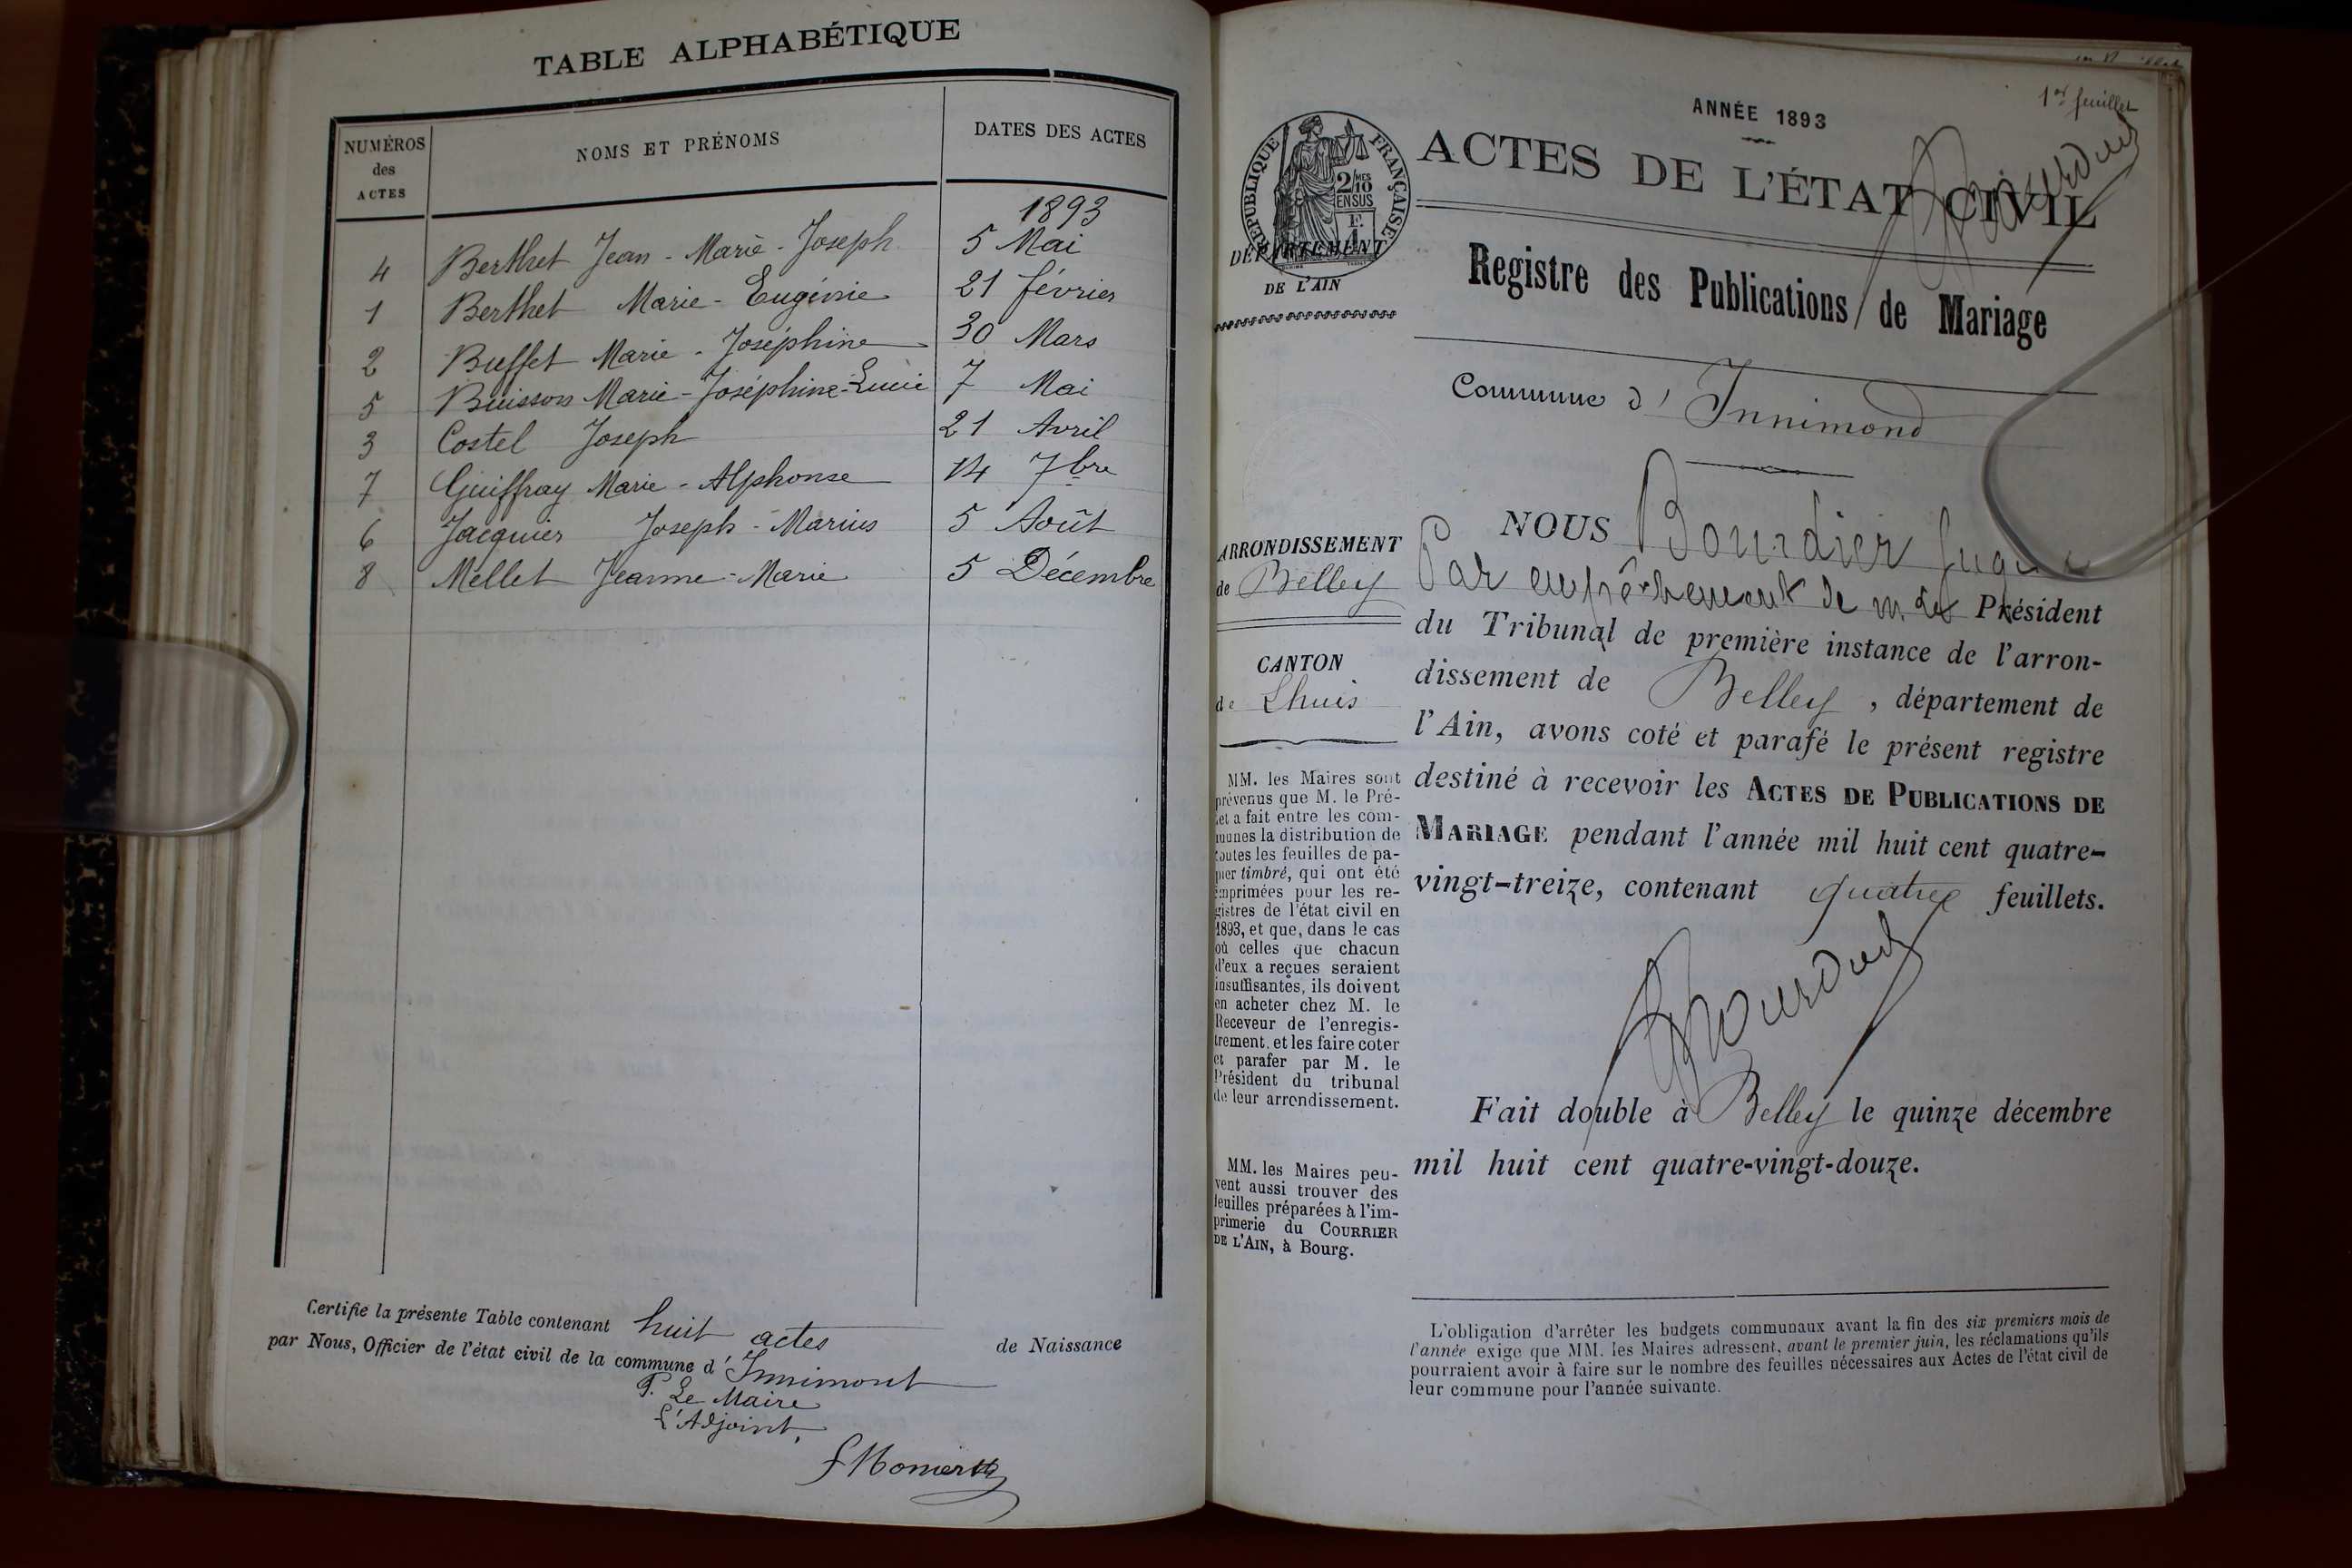 TABLE ALPHABÉTIQUE
NUMÉROS des ACTES
NOMS ET PRÉNOMS
DATES DES ACTES
1893
4 Berthet Jean - Marie - Joseph 5 Mai
1 Berthet Marie - Eugénie 21 février
2 Buffet Marie - Joséphine 30 Mars
5 Buisson Marie - Joséphine - Lucie 7 Mai
3 Costel Joseph 21 Avril
7 Guiffray Marie - Alphonse 14 7bre
6 Jacquier Joseph - Marius 5 Août
8 Mellet Jeanne - Marie 5 Décembre
Certifie la présente Table contenant huit actes de Naissance
par Nous, Officier de l'état civil de la commune d'Innimont
P. Le Maire
L'Adjoint,
1er feuillet
ANNÉE 1893
ACTES DE L'ÉTAT CIVIL
RÉPUBLIQUE FRANÇAISE
2 MES
10
EN SUS
DÉPARTEMENT
DE L'AIN
Registre des Publications de Mariage
Commune d'Innimond
ARRONDISSEMENT
de Belley
CANTON
de Lhuis
MM. les Maires sont
prévenus que M. le Pré-
fet a fait entre les com-
munes la distribution de
toutes les feuilles de pa-
pier timbré, qui ont été
imprimées pour les re-
gistres de l'état civil en
1893, et que, dans le cas
où celles que chacun
d'eux a reçues seraient
insuffisantes, ils doivent
en acheter chez M. le
Receveur de l'enregis-
trement, et les faire coter
et parafer par M. le
Président du tribunal
de leur arrondissement.
MM. les Maires peu-
vent aussi trouver des
feuilles préparées à l'im-
primerie du COURRIER
DE L'AIN, à Bourg.
NOUS Bourdier
Par empêchement de m. le Président
du Tribunal de première instance de l'arron-
dissement de Belley, département de
l'Ain, avons coté et parafé le présent registre
destiné à recevoir les ACTES DE PUBLICATIONS DE
MARIAGE pendant l'année mil huit cent quatre-
vingt-treize, contenant quatre feuillets.
Fait double à Belley le quinze décembre
mil huit cent quatre-vingt-douze.
L'obligation d'arrêter les budgets communaux avant la fin des six premiers mois de
l'année exige que MM. les Maires adressent, avant le premier juin, les réclamations qu'ils
pourraient avoir à faire sur le nombre des feuilles nécessaires aux Actes de l'état civil de
leur commune pour l'année suivante.